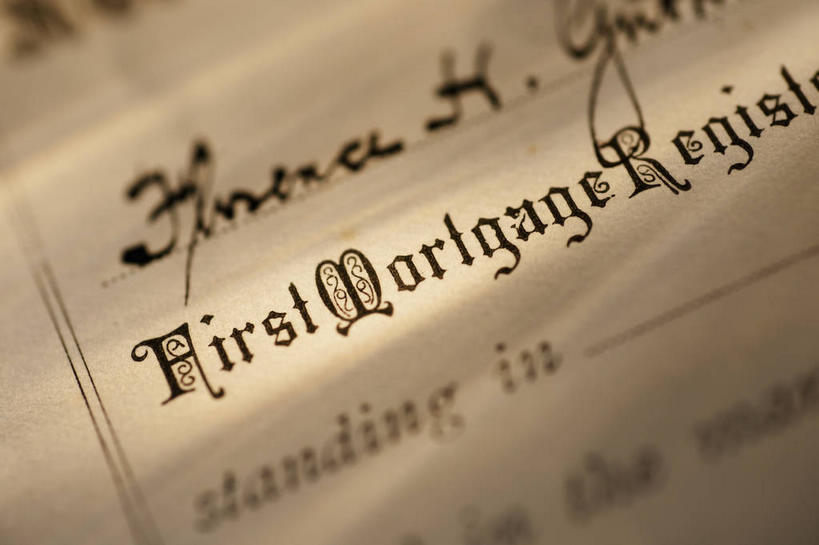 Florence H.
First Mortgage Registe
standing in
in the